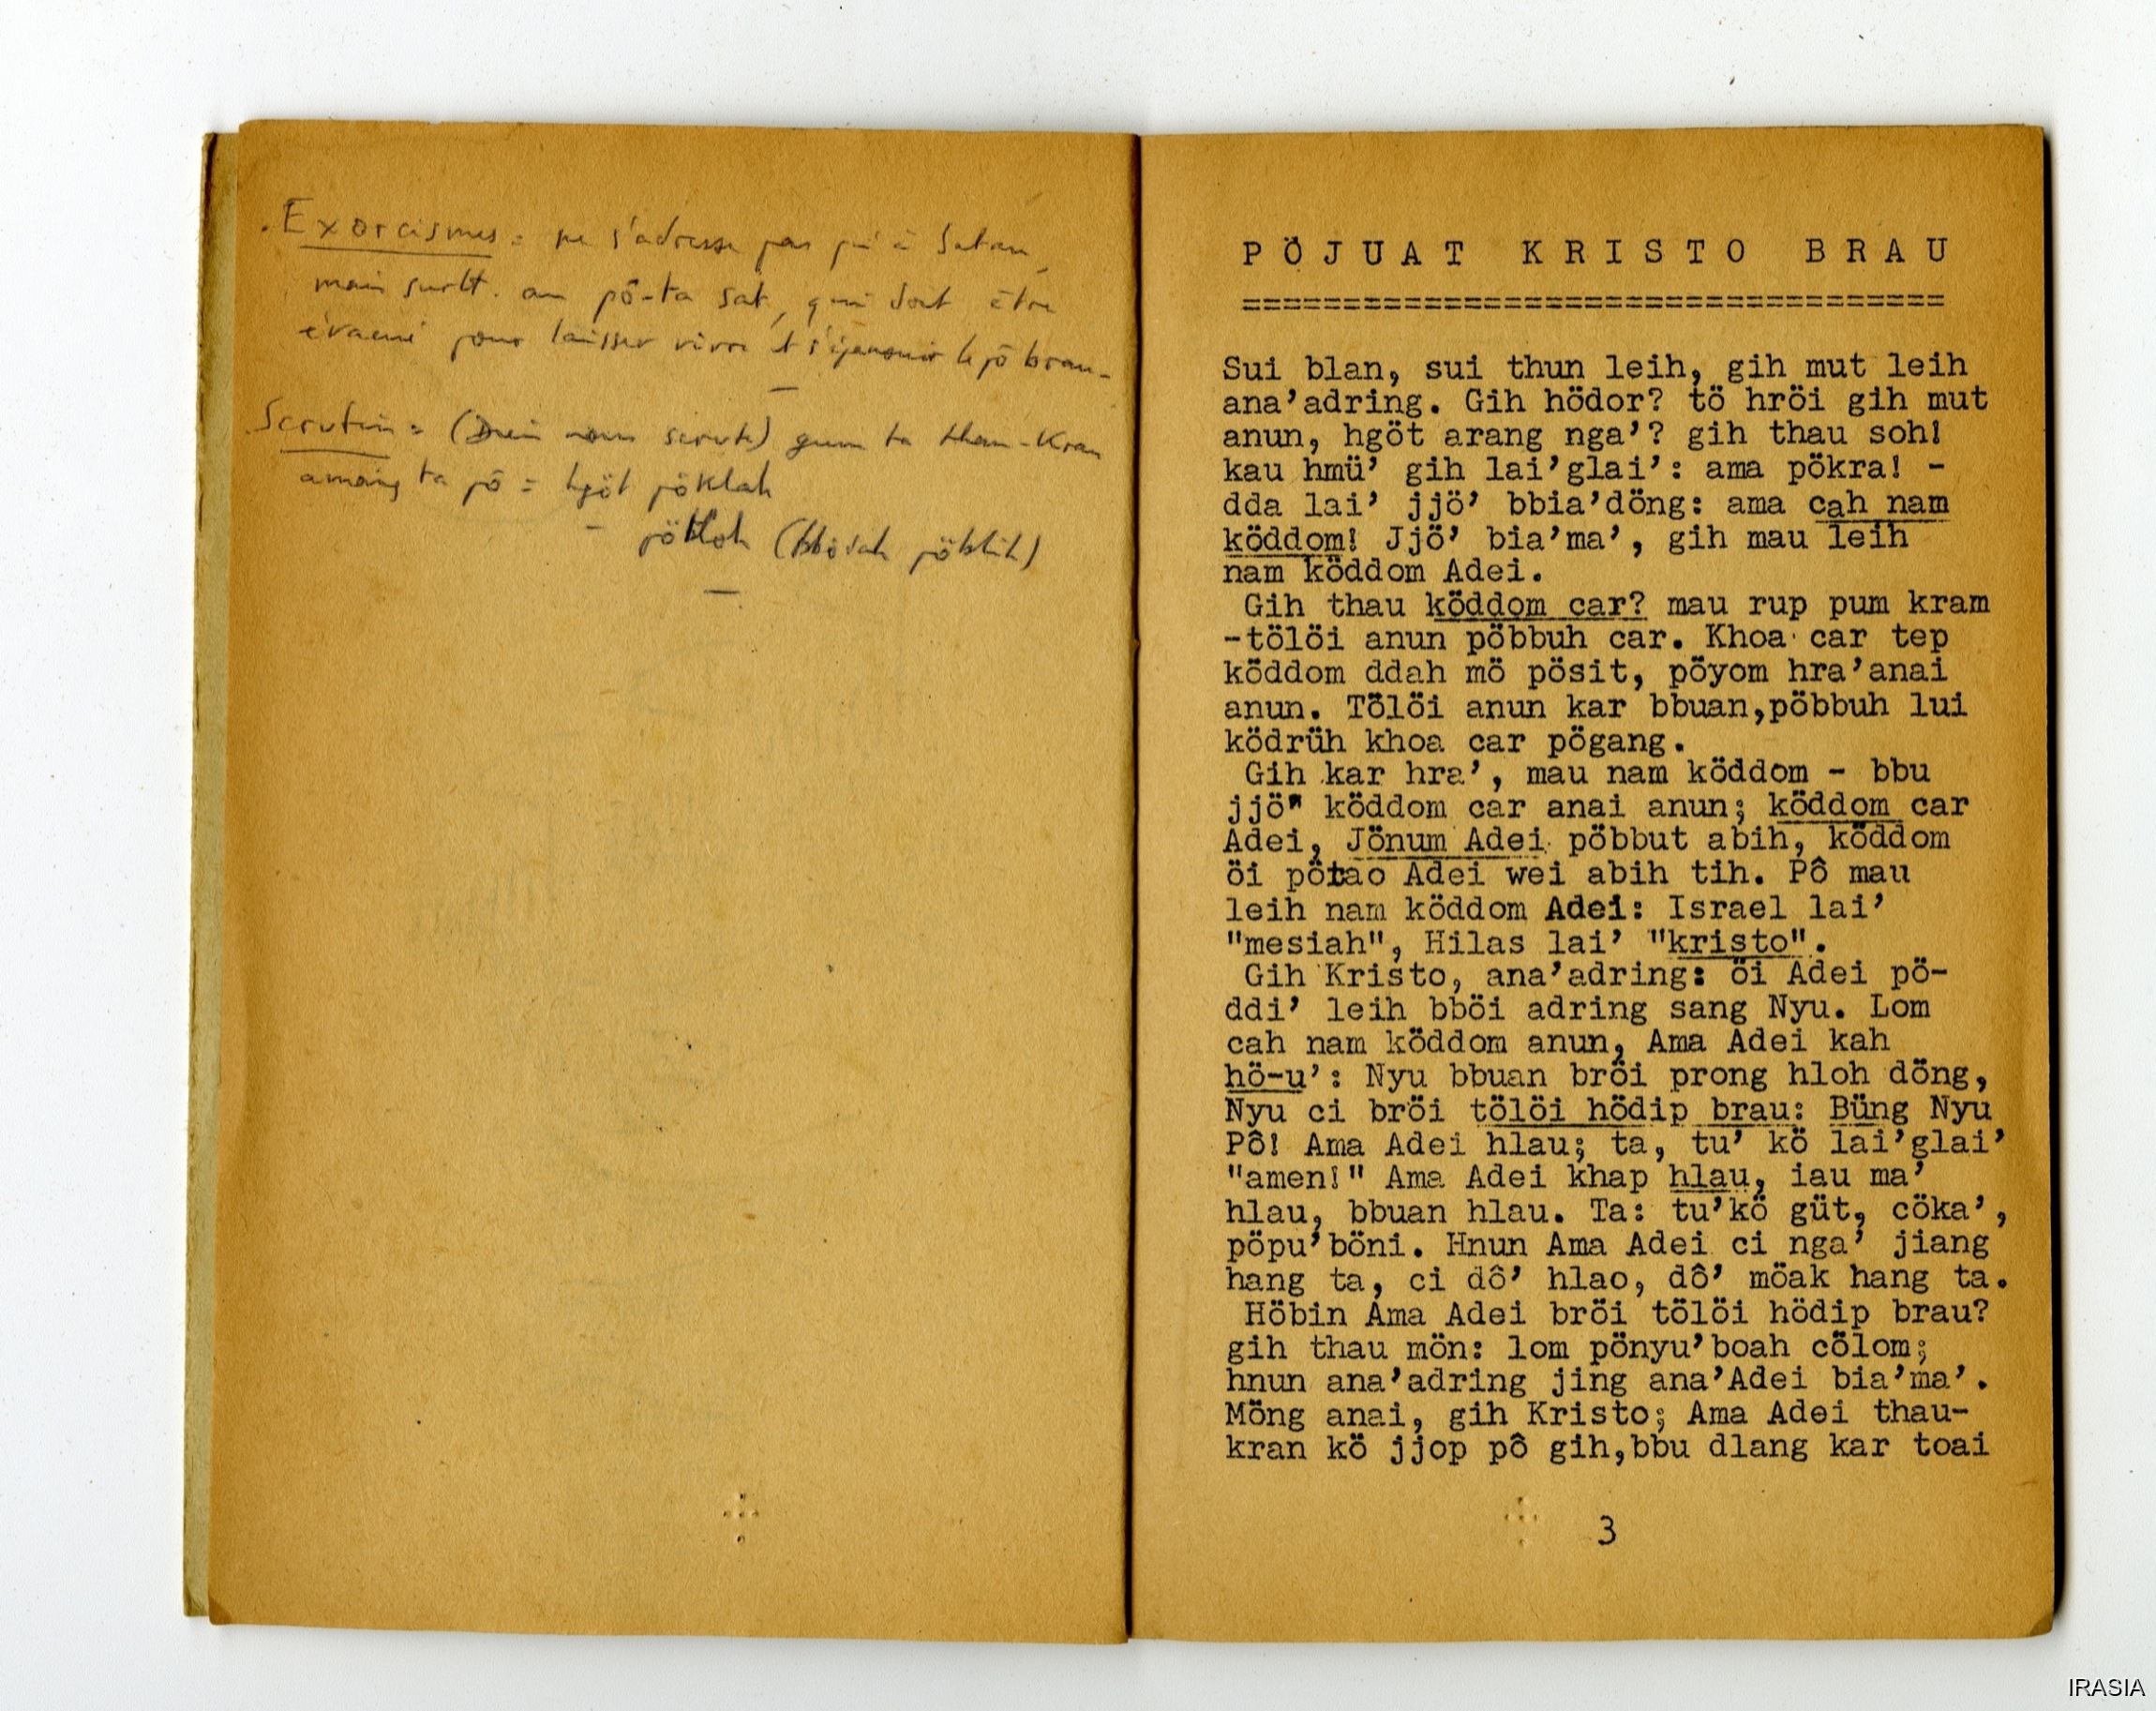 . Exorcismes = ne s'adresse pas à Satan,
mais surtt. au pö-ta sat, qui doit être
évacué pour laisser vivre et s'épanouir le pö brau_
Scrutin = (Dieu nous scrute) gum ta thau-Kran
amang ta pö = hgöt pöklah
pökloh (bbödah pöblih)
PÖJUAT KRISTO BRAU
===================================
Sui blan, sui thun leih, gih mut leih
ana’adring. Gih hödor? tö hröi gih mut
anun, hgöt arang nga’? gih thau soh!
kau hmü’ gih lai’glai’: ama pökra! -
dda lai’ jjö’ bbia’döng: ama cah nam
köddom! Jjö’ bia’ma’, gih mau leih
nam köddom Adei.
Gih thau köddom car? mau rup pum kram
-tölöi anun pöbbuh car. Khoa car tep
köddom ddah mö pösit, pöyom hra’anai
anun. Tölöi anun kar bbuan,pöbbuh lui
ködrüh khoa car pögang.
Gih kar hra’, mau nam köddom - bbu
jjö" köddom car anai anun; köddom car
Adei, Jönum Adei pöbbut abih, köddom
öi pötao Adei wei abih tih. Pô mau
leih nam köddom Adei: Israel lai’
"mesiah", Hilas lai’ "kristo".
Gih Kristo, ana’adring: öi Adei pö-
ddi’ leih bböi adring sang Nyu. Lom
cah nam köddom anun, Ama Adei kah
hö-u’: Nyu bbuan bröi prong hloh döng,
Nyu ci bröi tölöi hödip brau: Büng Nyu
Pô! Ama Adei hlau; ta, tu’ kö lai’glai’
"amen!" Ama Adei khap hlau, iau ma’
hlau, bbuan hlau. Ta: tu’kö güt, cöka’,
pöpu’böni. Hnun Ama Adei ci nga’ jiang
hang ta, ci dô’ hlao, dô’ möak hang ta.
Höbin Ama Adei bröi tölöi hödip brau?
gih thau mön: lom pönyu’boah cölom;
hnun ana’adring jing ana’Adei bia’ma’.
Möng anai, gih Kristo; Ama Adei thau-
kran kö jjop pô gih,bbu dlang kar toai
3
IRASIA